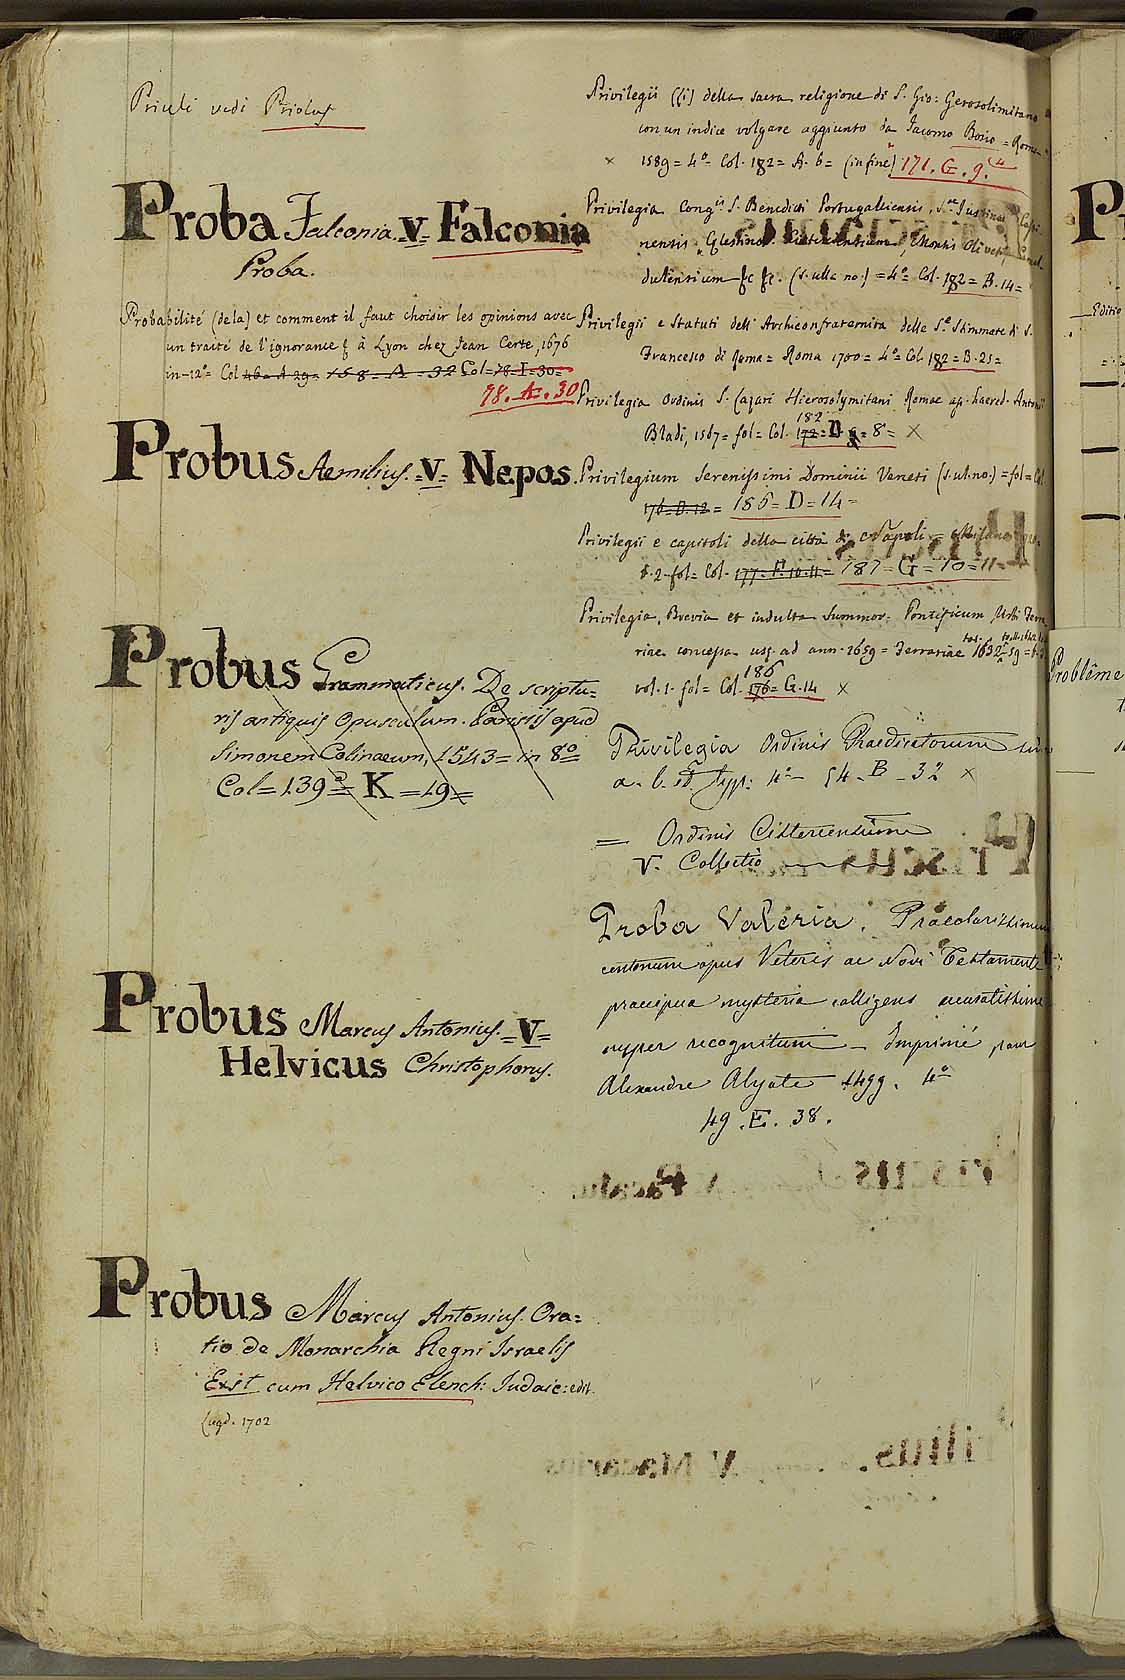 Priuli vedi Priolus
Proba Falconia. =V= Falconia
Proba.
Probabilité (de la) et comment il faut choisir les opinions avec
un traité de l'ignorance & à Lyon chez Jean Certe, 1676
in-12º= Col 46= A 29= 158= A = 32 Col=78=I=30=
98. A. 30
Probus Aemilius. =V= Nepos.
Probus Grammaticus. De scriptu=
ris antiquis Opusculum. Parisiis apud
Simonem Colinaeum, 1543= in 8º=
Col= 139= K =19=
Probus Marcus Antonius. =V=
Helvicus Christophorus.
Probus Marcus Antonius. Ora=
tio de Monarchia Regni Israelis
Exst cum Helvico Elench: Judaic: edit.
Lugd. 1702
Privilegii (li) della sacra religione di S. Gio: Gerosolimitano
con un indice volgare aggiunto da Iacomo Bosio = Roma
× 1589 = 4º= Col. 182= A. 6= (in fine) 171. G. 9.
Privilegia Cong.is S. Benedicti Portugalliensis, S.ae Justinae Cassi
nensis, Celestinor. Cisterciensium, Montis Oliveti, Camal
dulensium &c &c. (s. ulla no.) =4º= Col. 182= B. 14=
Privilegii e Statuti dell' Archiconfraternita delle S.e Stimmate di S.
Francesco di Roma= Roma 1700= 4º= Col. 182= B. 25=
Privilegia Ordinis S. Lazari Hierosolymitani Romae ap. haered. Antonii
182
Bladi, 1567= fol= Col. 172= D = 8= ×
Privilegium Serenissimi Dominii Veneti (s. ul. no.) =fol= Col.
176=D.12= 186= D=14=
Privilegii e capitoli della città di Napoli =
t. 2. fol= Col. 177. F. 10. 11= 187= G= 10= 11=
Privilegia, Brevia et indulta Summor. Pontificum Urbi Ferra
riae concessa usq. ad ann. 1659= Ferrariae 1632=59=
186
vol. 1. fol= Col. 176= G. 14 ×
Privilegia Ordinis Praedicatorum
a. l. et typ: 4º= 54. B. 32 ×
= Ordinis Cisterciensium
V. Collectio
Proba Valeria. Praeclarissimum
centonum opus Veteris ac Novi Testamenti
praecipua mysteria colligens accuratissime
nuper recognitum — Imprimé pour
Alexandre Alyate 1499. 4º
49. E. 38.
P
Editio
Problême